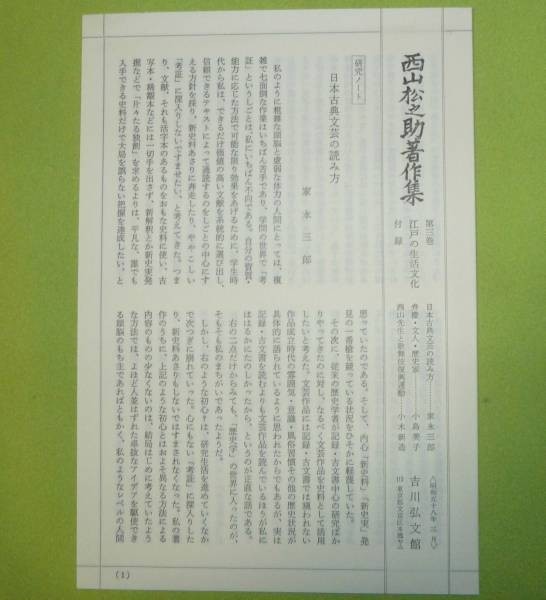 西山松之助著作集
第三巻
江戸の生活文化
付録
日本古典文芸の読み方……家永三郎
弁慶・文人・歴史家……小島美子
西山先生と歌舞伎復興運動……小木新造
(昭和五十八年三月)
吉川弘文館
東京都文京区本郷
研究ノート
日本古典文芸の読み方
家永三郎
私のように粗雑な頭脳と虚弱な体力の人間にとっては、複
雑で七面倒な作業はいちばん苦手であり、学問の世界で「考
証」というしごとは、私にいちばん不向である。自分の資質・
能力に応じた方法で可能な限り効果をあげるために、学生時
代から私は、できるだけ価値の高い文献を系統的に選び出し、
信頼できるテキストによって通読するのをしごとの中心にす
える方針を採り、新史料あさりに奔走したり、ややこしい
「考証」に深入りしないですませたい、と考えてきた。つま
り、文献、それも活字本のあるものをおもな史料に使い、古
写本・稀覯本などには一切手を出さず、新解釈とか新史実発
掘などで「片々たる独創」を求めるよりは、平凡な、誰でも
入手できる史料だけで大局を誤らない把握を達成したい、と
思っていたのである。そして、内心「新史料」「新史実」発
見の一番槍を競っている状況をひそかに軽蔑していた。
その次に、従来の歴史学者が記録・古文書中心の研究ばか
りやってきたのに対し、なるべく文芸作品を史料として活用
したいと考えた。文芸作品には記録・古文書では窺われない
作品成立時代の雰囲気・意識・風俗習慣その他の歴史状況が
具体的に語られているように思われたからでもあるが、実は
記録・古文書を読むよりも文芸作品を読んでいるほうが私に
ははるかにたのしかったから、というのが正直な話である。
右の二点だけからみても、「歴史学」の世界に入ったのが、
そもそも私のまちがいであったようだ。
しかし、右のような初心は、研究生活を進めていくなか
で次つぎに崩れていった。心にもない「考証」に深入りした
り、新史料あさりもしないではすまされなくなった。私の著
作のうちに、上記のような初心とはおよそ異なる方法による
内容のものの少なくないのは、結局はじめに考えていたよう
な方法では、よほど人並はずれた卓抜なアイデアを駆使でき
る頭脳のもち主であればともかく、私のようなレベルの人間
(1)